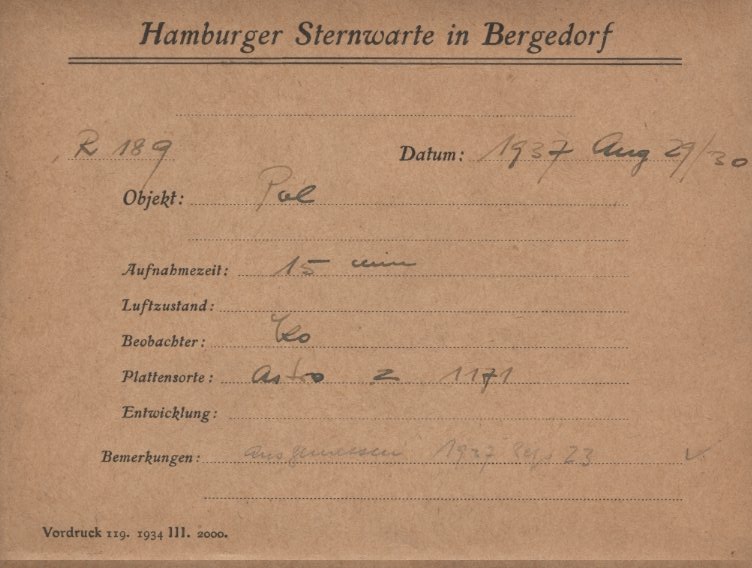 Hamburger Sternwarte in Bergedorf
R 189 Datum: 1937 Aug 29/30
Objekt: Pol
Aufnahmezeit: 15 min
Luftzustand:
Beobachter: Ko
Plattensorte: Astro Z 1171
Entwicklung:
Bemerkungen: ausgemessen 1937 Sep 23 v.
Vordruck 119. 1934 III. 2000.